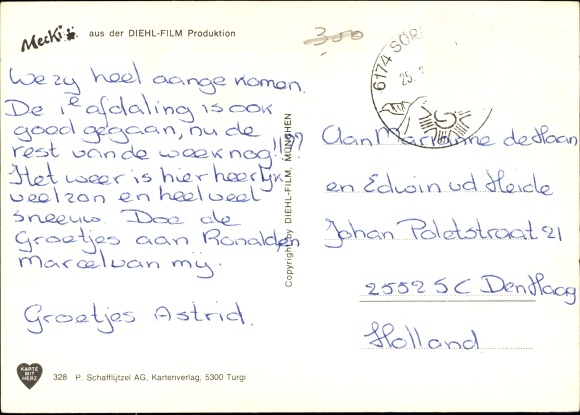 Mecki aus der DIEHL-FILM Produktion
300
6174 SÖR
25.
We zy heel aangekomen.
De 1e afdaling is ook
goed gegaan, nu de
rest van de week nog!!??
Het weer is hier heerlijk
veel zon en heel veel
sneeuw. Doe de
Groetjes aan Ronald en
Marcel van mij.
Groetjes Astrid.
Copyright by DIEHL-FILM, MÜNCHEN
Aan Marianne de Haan
en Edwin vd Heide
Johan Poletstraat 21
2552 SC Den Haag
Holland
KARTE
MIT
HERZ
328 P. Schafflützel AG, Kartenverlag, 5300 Turgi